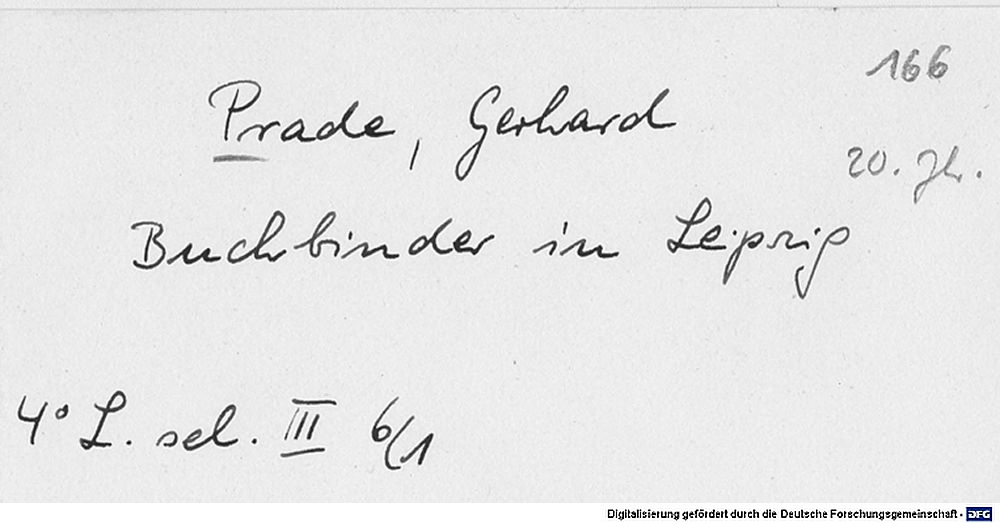 166
Prade, Gerhard
20. Jh.
Buchbinder in Leipzig
4° L. sel. III 6/1
Digitalisierung gefördert durch die Deutsche Forschungsgemeinschaft - DFG